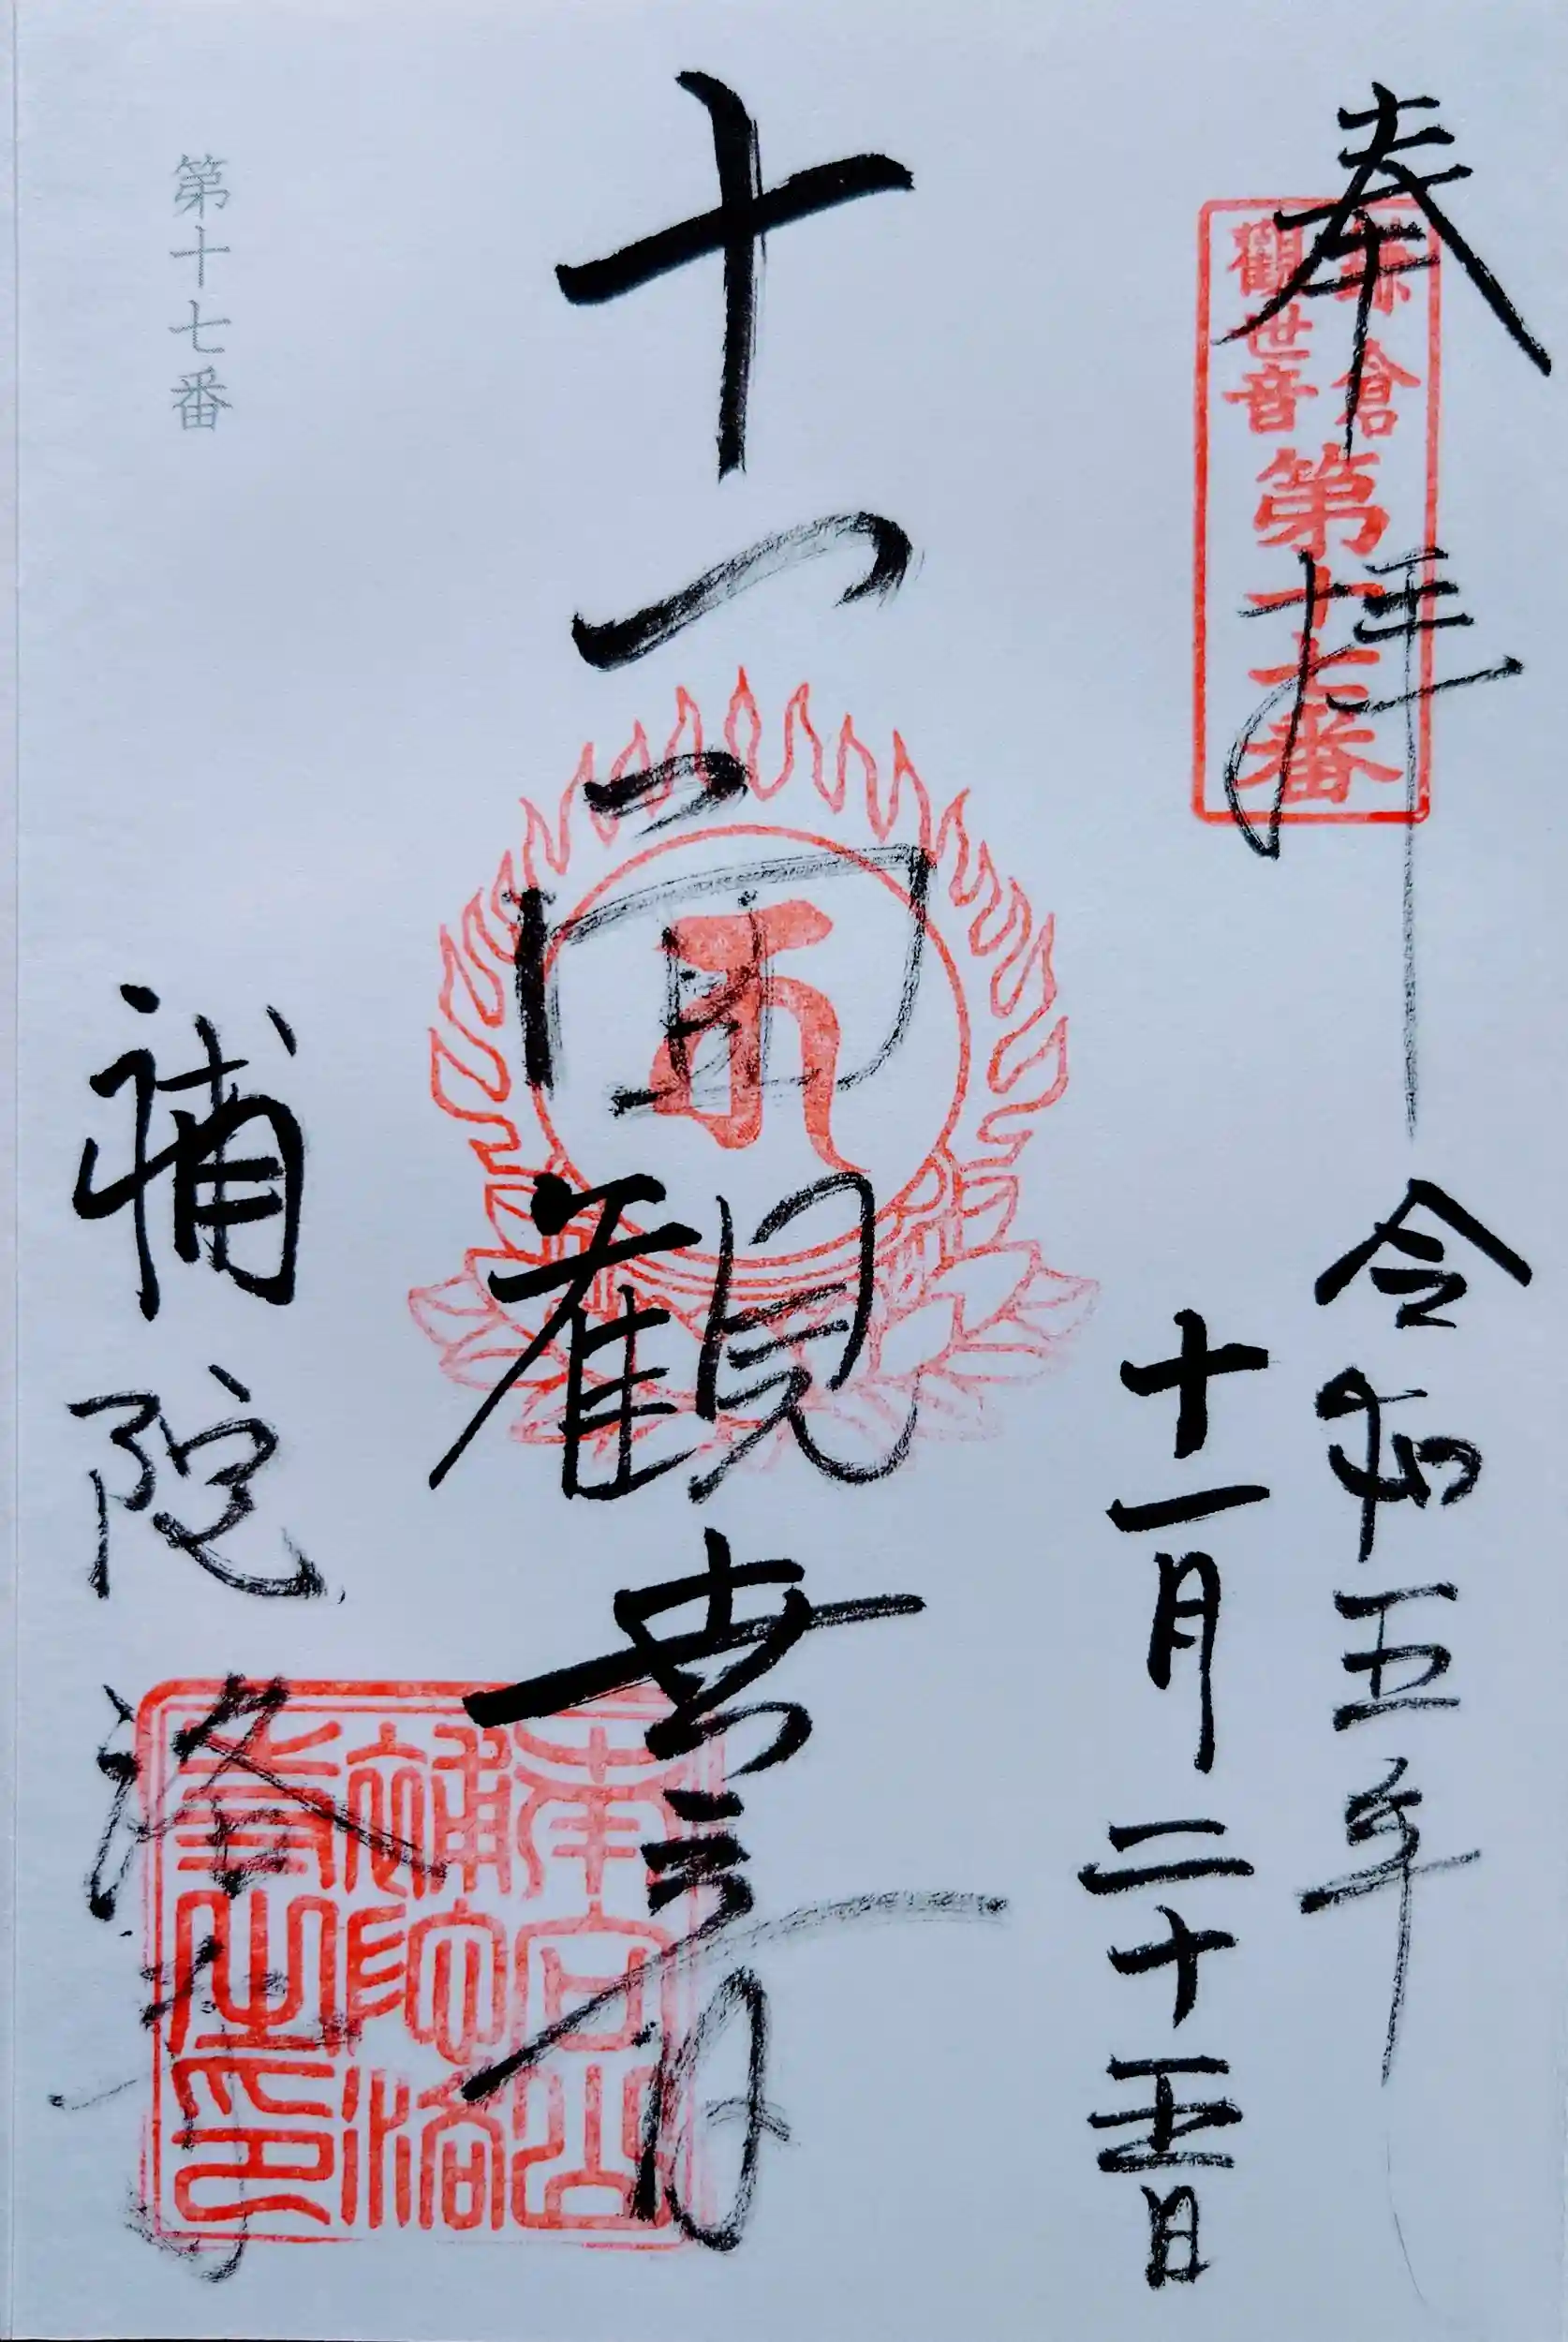 奉拝
令和五年
十一月二十五日
鎌倉
観世音
第十七番
十一面観世音
補陀洛寺
第十七番
南向山
補陀洛
寺之印